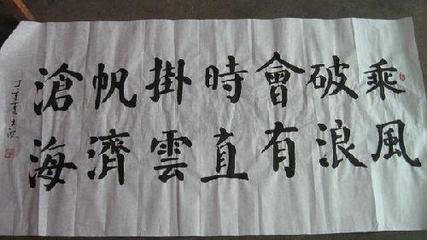 乘風
破浪
會有
時直
掛雲
帆濟
滄海
丁亥